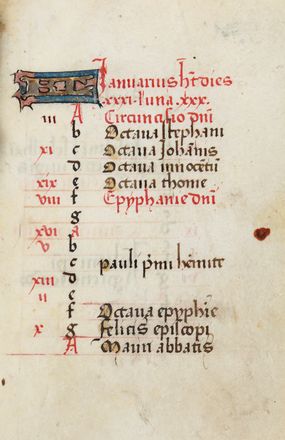 Januarius ht dies
xxxi. luna. xxx.
iii A Circuncisio dni
b Octaua stephani
xi c Octaua Iohanis
d Octaua innocetu
xix e Octaua thome
viii f Epyphanie dni
g
xvi A
v b
c pauli pmi hemite
xiii d
ii e
f Octaua epyphie
x g felicis episcopi
A Mauri abbatis